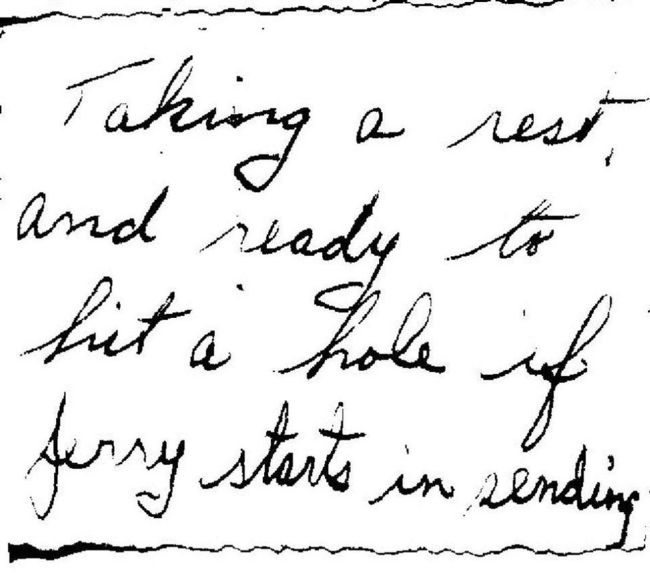 Taking a rest,
and ready to
hit a hole if
Jerry starts in sending